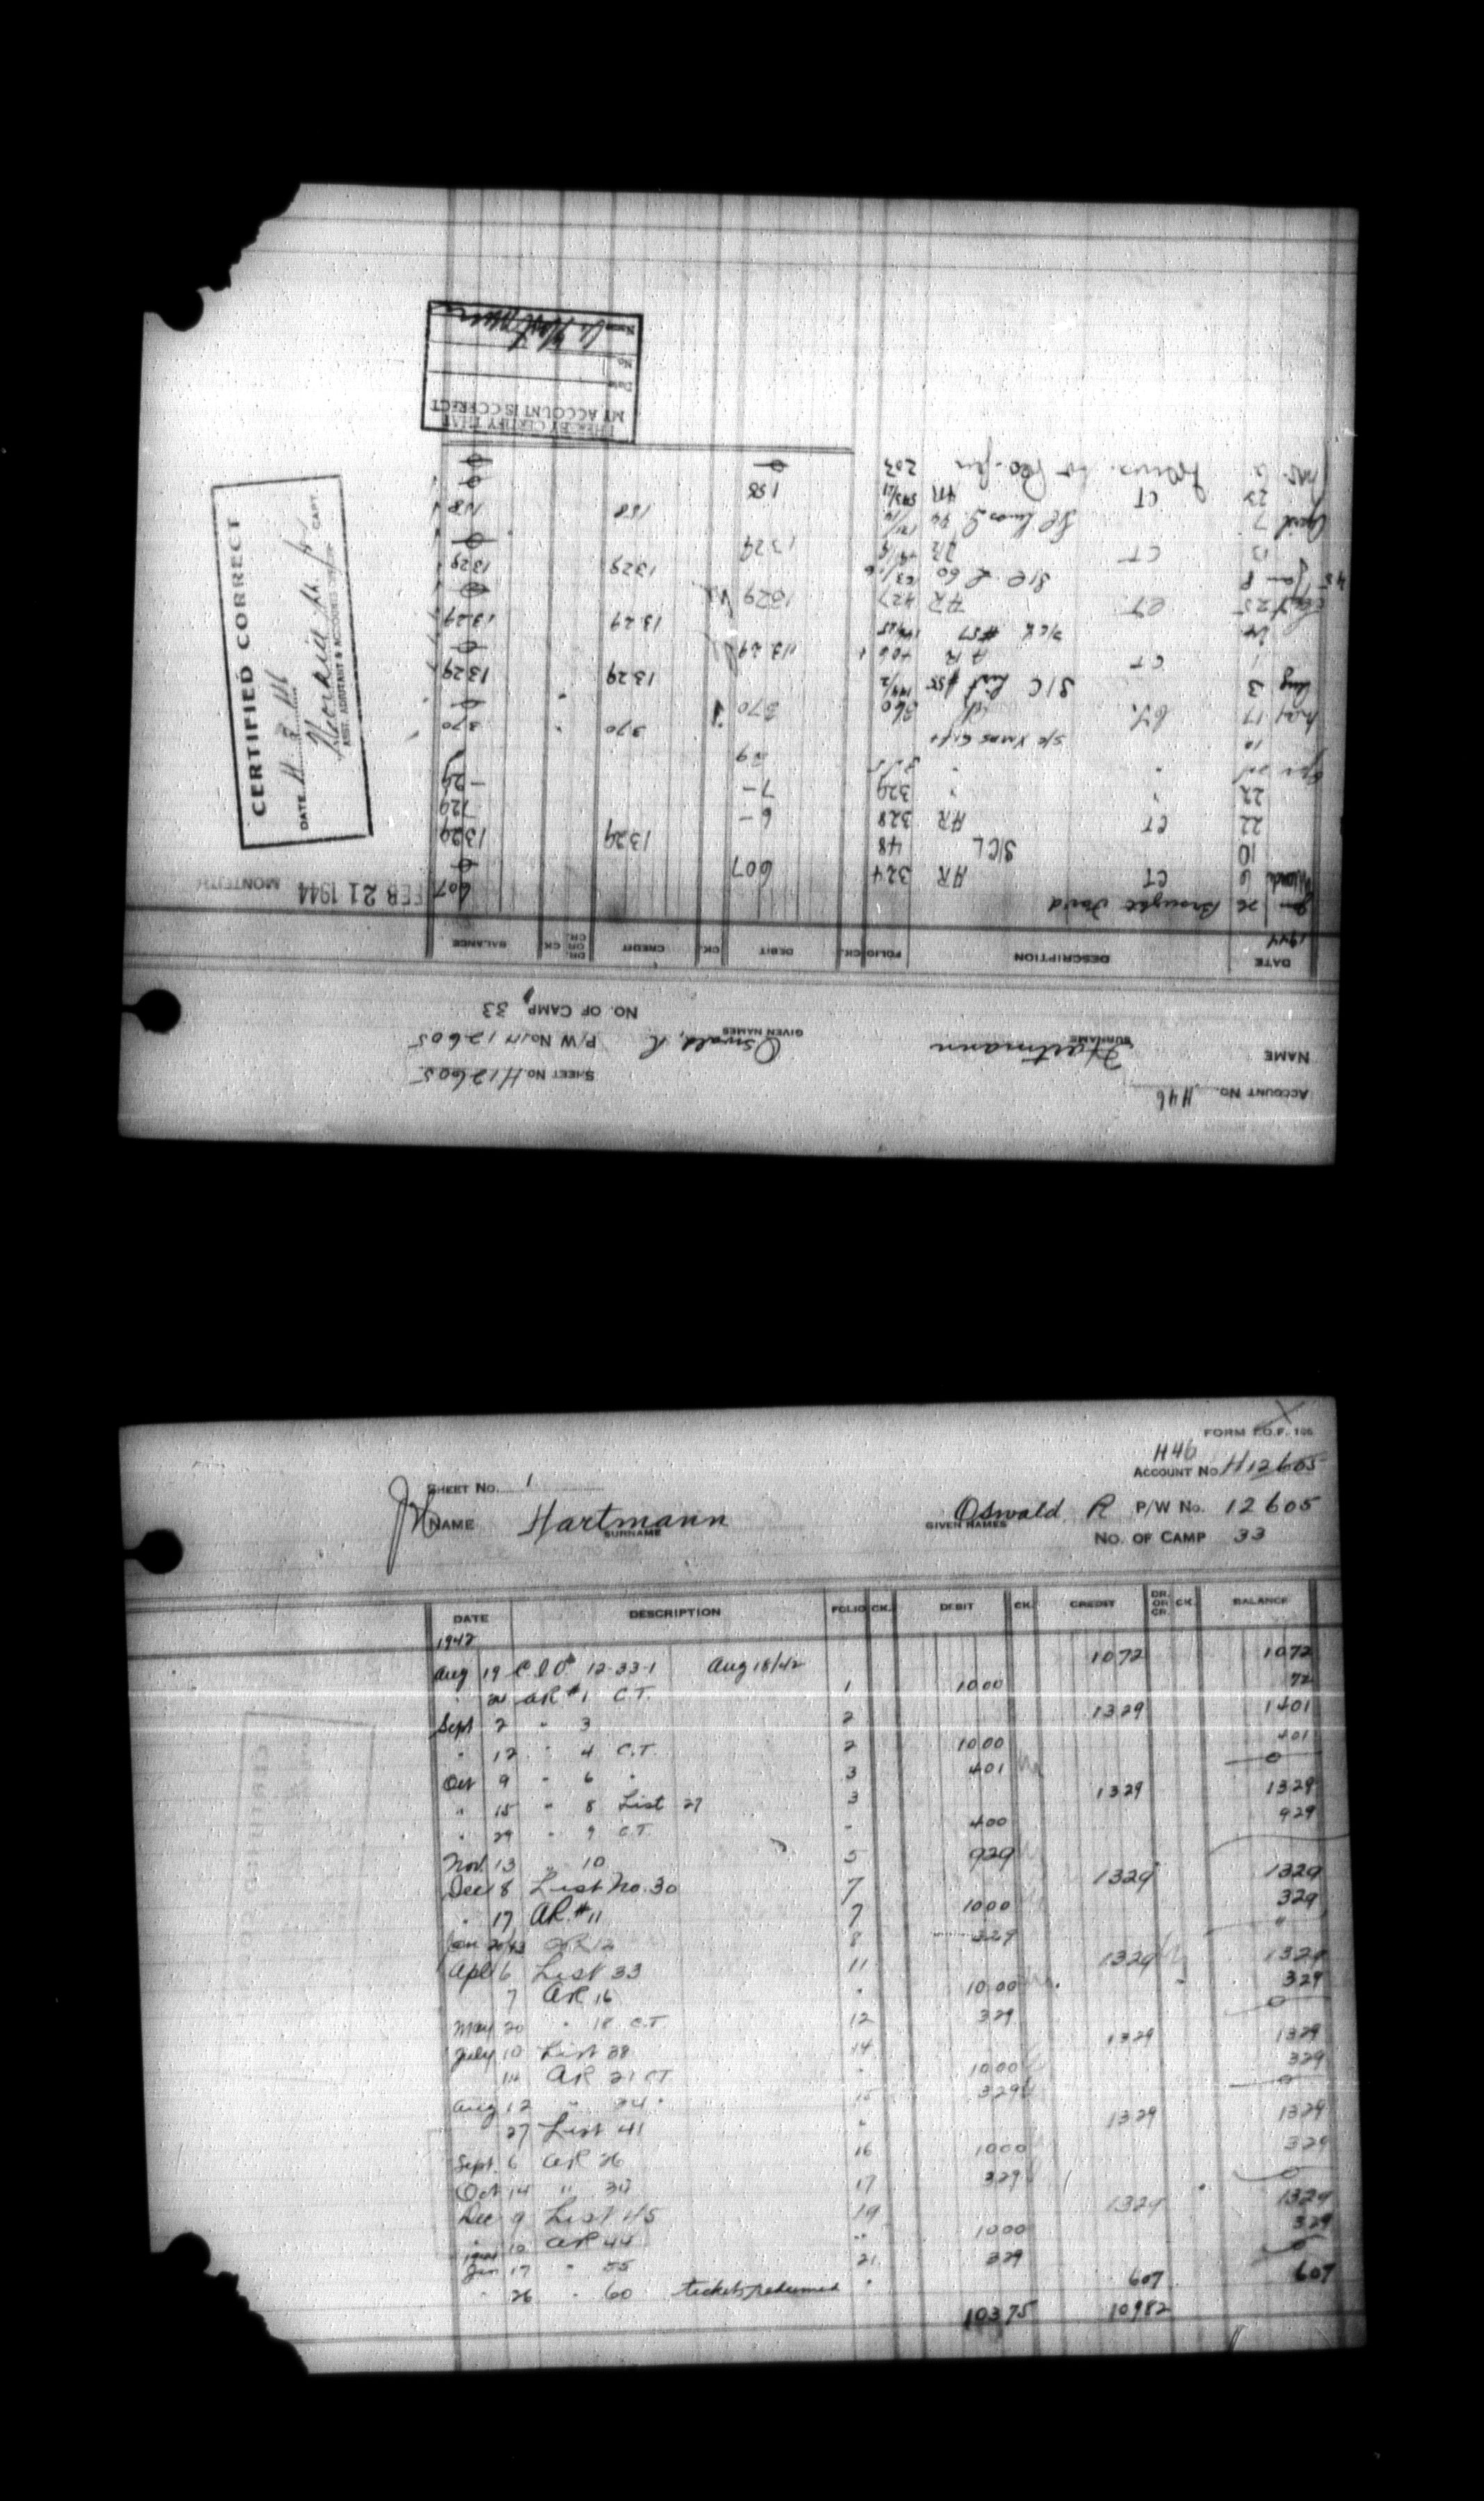 ACCOUNT NO. H46
SHEET NO. H12605
NAME Hartmann Oswald, R P/W No. 12605
SURNAME GIVEN NAMES
NO. OF CAMP, 33
DATE DESCRIPTION FOLIO CK. DEBIT CK. CREDIT DR. OR CR. CK. BALANCE
1944
Jan 26 Brought Forward 607
FEB 21 1944 MONTEITH
March 6 CT AR 324 607 0
10 S/CL 48 1329 1329
22 CT AR 328 6— 729
22 " " 329 7— — 29
29
10 S/C Xmas Gift 370 370
May 17 CT. 360 370 0
Aug 3 S/C List #55 149/2 1329 1329
1 CT AR 406 1329 0
S/CL #57 1329 1329
Sept 25 CT AR 427 1329 0
45 Jan 8 S/C L 60 1329 1329
CT AR 1329 0
April 7 158 158
23 CT AR 158 0
203 0
CERTIFIED CORRECT
DATE
ASST. ADJUTANT & ACCOUNTS CAPT.
I HEREBY CERTIFY THAT
MY ACCOUNT IS CORRECT
Date
No.
Name O. Hartmann
FORM P.O.F. 106
H46
SHEET NO. 1 ACCOUNT NO. H12605
NAME Hartmann Oswald R P/W No. 12605
SURNAME GIVEN NAMES
NO. OF CAMP 33
DATE DESCRIPTION FOLIO CK. DEBIT CK. CREDIT DR. OR CR. CK. BALANCE
1942
Aug 19 12-33-1 Aug 18/42 1072 1072
" 24 AR #1 C.T. 1 1000 72
Sept 2 " 3 2 1329 1401
" 12 " 4 C.T. 2 1000 401
Oct 9 " 6 " 3 401 0
" 15 " 8 List 27 3 1329 1329
" 29 " 9 C.T. - 400 929
Nov. 13 " 10 5 929
Dec 8 List No. 30 7 1329 1329
" 17 AR #11 7 1000 329
Jan 20/43 AR 12 8 329 "
Apl 6 List 33 11 1329 1329
7 AR 16 " 1000 329
May 20 " 18 C.T. 12 329 0
July 10 List 38 14 1329 1329
14 AR 21 CT " 1000 329
Aug 12 " 24 " 15 329 0
27 List 41 " 1329 1329
Sept. 6 AR 26 16 1000 329
Oct 14 " 30 17 329 0
Dec 9 List 45 19 1329 1329
" 10 AR 44 " 1000 329
1944
Jan 17 " 55 21 329 0
" 26 " 60 tickets redeemed " 607 607
10375 10982